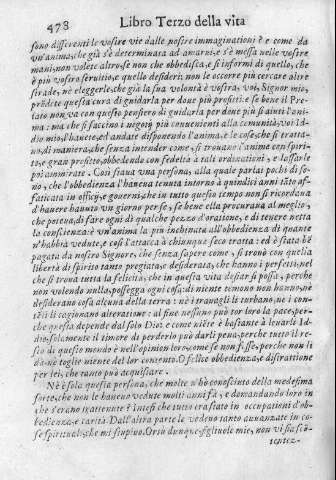 478 Libro Terzo della vita
sono differenti le vostre vie dalle nostre immaginationi è e come da
vn'anima, che già s'è determinata ad amarui, e s'è messa nelle vostre
mani, non volete altro, se non che obbedisca, e si informi di quello, che
è più vostro seruitio, e quello desideri: non le occorre più cercare altre
strade, nè eleggerle, che già la sua volontà è vostra, voi, Signor mio,
prēdete questa cura di guidarla per doue più profitti: e se bene il Pre-
lato non và con questo pensiero di guidarla per doue più s'aiuti l'ani-
ma: ma che si faccino i negotij conuenienti alla communità, voi Id-
dio mio, l'hauete, & andate disponendo l'anima, e le cose, che si tratta-
no, di maniera, che senza intender come, si trouano l'anime con spiri-
to, e gran profitto, obbedendo con fedeltà à tali ordinationi, e lassarle
poi ammirate. Così staua vna persona, alla quale parlai pochi dì so-
no, che l'obbedienza l'haueua tenuta intorno à quindici anni tāto af-
faticata in officij, e gouerni, che in tutto questo tempo non si ricordaua
d'hauere hauuto vn giorno per se, se bene ella procuraua al meglio,
che poteua, di fare ogni dì qualche pezzo d'oratione, e di tenere netta
la conscienza: è vn'anima la più inchinata all'obbedienza di quante
n'habbia vedute, e così l'attacca à chiunque seco tratta: ed è stata bē
pagata da nostro Signore, che senza sapere come, si trouò con quella
libertà di spirito tanto pregiata, e desiderata, che hanno i perfetti, nel-
che si troua tutta la felicità, che in questa vita desiar si possa, perche
non volendo nulla, posseggono ogni cosa; di niente temono non hanno, ne
desiderano cosa alcuna della terra: nè i trauagli li turbano, ne i con-
tēti li cagionano alteratione: al fine nessuno può tor loro la pace, per-
che questa depende dal solo Dio: e come niēte è bastante à leuarli Id-
dio, solamente il timore di perderlo può darli pena, perche tutto il re-
sto di questo mondo è nell'opinion loro, come se non fusse, perche non li
dà nè toglie niente del lor contento. O felice obbedienza, e distrattione
per lei, che tanto può acquistare.
Nè è sola questa persona, che molte n'hò conosciuto della medesima
sorte, che non le haueuo vedute molti anni fà, e domandando loro in
che s'erano trattenute? intesi che tutto era stato in occupationi d'ob-
bedienza, e carità. Dall'altra parte le vedeuo tanto auuanzate in co-
se spirituali, che mi stupiuo. Orsù dunque figliuole mie, non vi sia sco-
tentez-